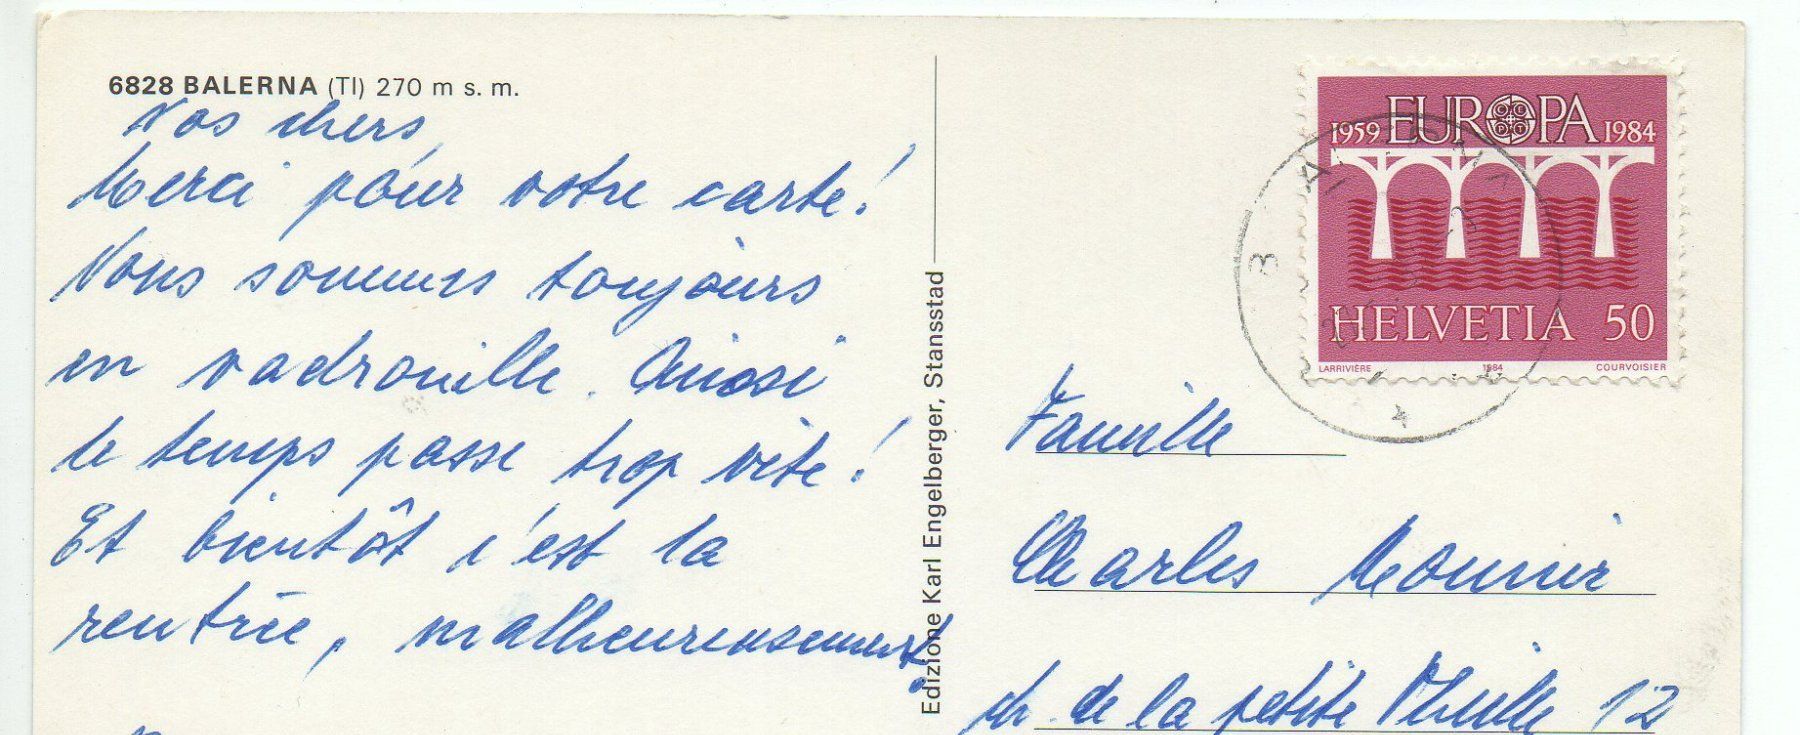 6828 BALERNA (TI) 270 m s. m.
Nos chers,
Merci pour votre carte!
Nous sommes toujours
en vadrouille. Ainsi
le temps passe trop vite!
Et bientôt c'est la
rentrée, malheureusement.
Edizione Karl Engelberger, Stansstad
1959 EUROPA 1984
CEPT
HELVETIA 50
LARRIVIÈRE 1984 COURVOISIER
Famille
Charles Monnier
ch. de la petite Thuille 12